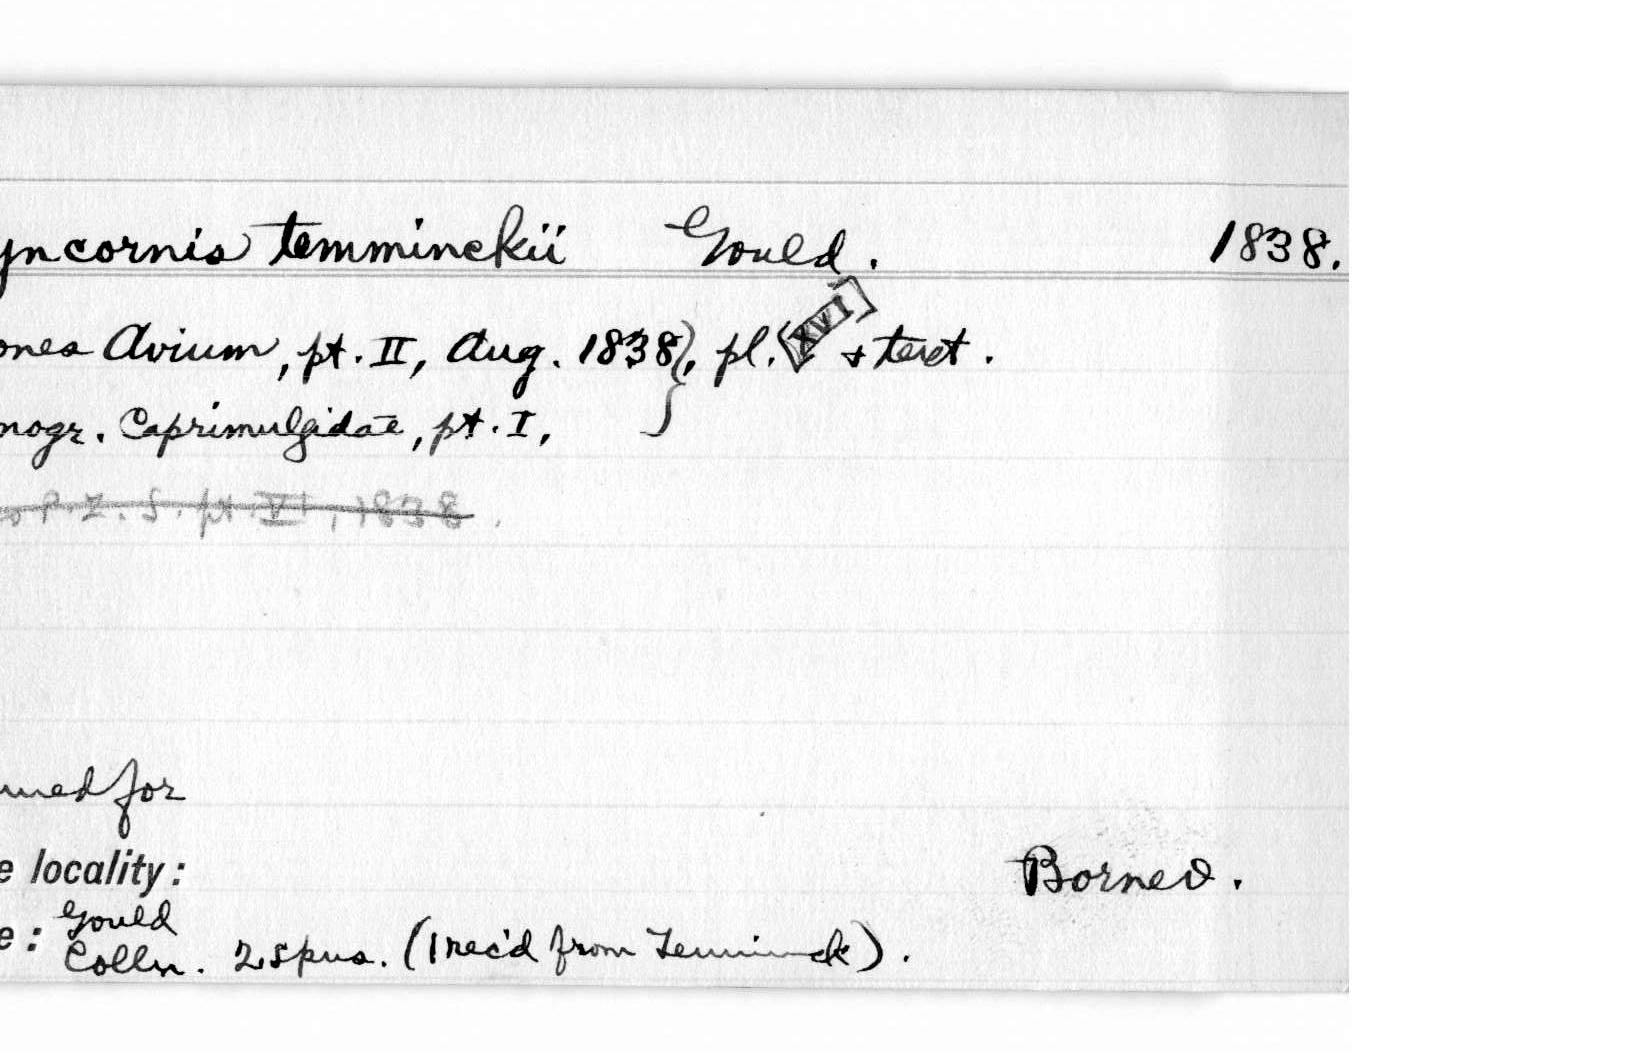 yncornis temminckii Gould. 1838.
ones Avium, pt. II, Aug. 1838), pl. [XVI] + text.
nogr. Caprimulgidae, pt. I,
o P. Z. S. pt. VI, 1838.
med for
e locality: Borneo.
e: Gould
Colln. 2 spns. (1 rec'd from Temminck).